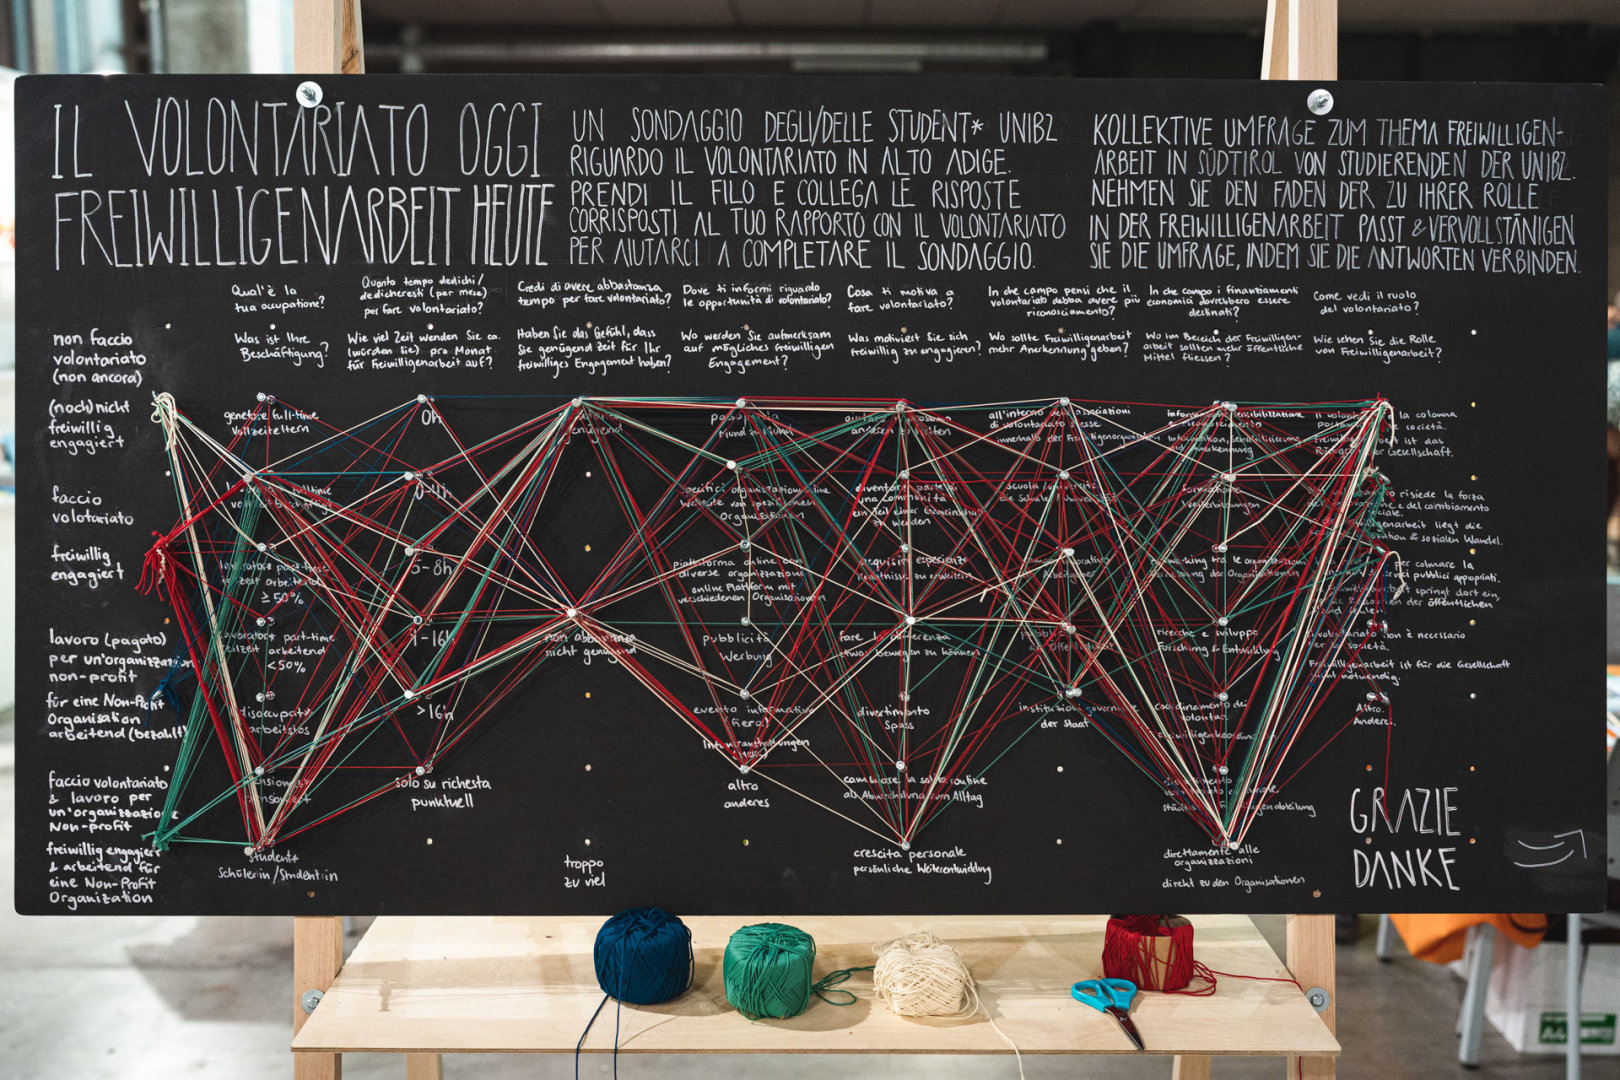 IL VOLONTARIATO OGGI
FREIWILLIGENARBEIT HEUTE
UN SONDAGGIO DEGLI/DELLE STUDENT* UNIBZ
RIGUARDO IL VOLONTARIATO IN ALTO ADIGE.
PRENDI IL FILO E COLLEGA LE RISPOSTE
CORRISPOSTI AL TUO RAPPORTO CON IL VOLONTARIATO
PER AIUTARCI A COMPLETARE IL SONDAGGIO.
KOLLEKTIVE UMFRAGE ZUM THEMA FREIWILLIGEN-
ARBEIT IN SÜDTIROL VON STUDIERENDEN DER UNIBZ.
NEHMEN SIE DEN FADEN DER ZU IHRER ROLLE
IN DER FREIWILLIGENARBEIT PASST & VERVOLLSTÄNIGEN
SIE DIE UMFRAGE, INDEM SIE DIE ANTWORTEN VERBINDEN.
Qual'è la
tua occupazione?
Was ist Ihre
Beschäftigung?
Quanto tempo dedichi/
dedicheresti (per mese)
per fare volontariato?
Wie viel Zeit wenden Sie ca.
(würden Sie) pro Monat
für Freiwilligenarbeit auf?
Credi di avere abbastanza
tempo per fare volontariato?
Haben Sie das Gefühl, dass
Sie genügend Zeit für Ihr
freiwilliges Engagement haben?
Dove ti informi riguardo
le opportunità di volontariato?
Wo werden Sie aufmerksam
auf mögliches freiwilligen
Engagement?
Cosa ti motiva a
fare volontariato?
Was motiviert Sie sich
freiwillig zu engagieren?
In che campo pensi che il
volontariato debba avere più
riconoscimento?
Wo sollte Freiwilligenarbeit
mehr Anerkennung geben?
In che campo i finanziamenti
economici dovrebbero essere
destinati?
Wo im Bereich der Freiwilligen-
arbeit sollten mehr öffentliche
Mittel fliessen?
Come vedi il ruolo
del volontariato?
Wie sehen Sie die Rolle
von Freiwilligenarbeit?
non faccio
volontariato
(non ancora)
(noch) nicht
freiwillig
engagiert
faccio
volotariato
freiwillig
engagiert
lavoro (pagato)
per un'organizzazion
non-profit
für eine Non-Profit
Organisation
arbeitend (bezahlt)
faccio volontariato
& lavoro per
un'organizzazione
Non-profit
freiwillig engagiert
& arbeitend für
eine Non-Profit
Organization
genitore full-time
Vollzeiteltern
≥50%
part-time
arbeitend
<50%
disoccupat*
arbeitslos
student*
Schüler:in/Student:in
0h
0-4h
5-8h
>16h
solo su richesta
punktuell
non abbastanza
nicht genügend
troppo
zu viel
Mund zu Mund
specifici organizzazioni online
Website von spezifischen
Organisationen
piattaforma online con
diverse organizzazioni
online Plattform mit
verschiedenen Organisationen
pubblicità
Werbung
evento informativo
(fiera)
altro
anderes
diventare parte di
una comunità
ein Teil einer Gemeinschaft
zu werden
acquisire esperienze
Kenntnisse zu erweitern
fare la differenza
etwas bewegen zu können
divertimento
Spass
cambiare la solita routine
als Abwechslung zum Alltag
crescita personale
persönliche Weiterentwicklung
all'interno associazioni
di volontariato stesse
innerhalb der Freiwilligenorganisationen
scuola/università
die Schule/Universität
istituzioni governative
der Staat
formazione
Weiterbildungen
networking tra le organizzazioni
ricerche e sviluppo
Forschung & Entwicklung
coordinamento dei
volontari
direttamente alle
organizzazioni
direkt zu den Organisationen
la colonna
società.
Freiwilligenarbeit ist das
der Gesellschaft.
risiede la forza
e del cambiamento
sociale.
liegt die
& sozialen Wandel.
per colmare la
pubblici appropriati.
springt dort ein,
der öffentlichen
volontariato non è necessario
società.
Freiwilligenarbeit ist für die Gesellschaft
nicht notwendig.
Altro.
Anderes.
GRAZIE
DANKE